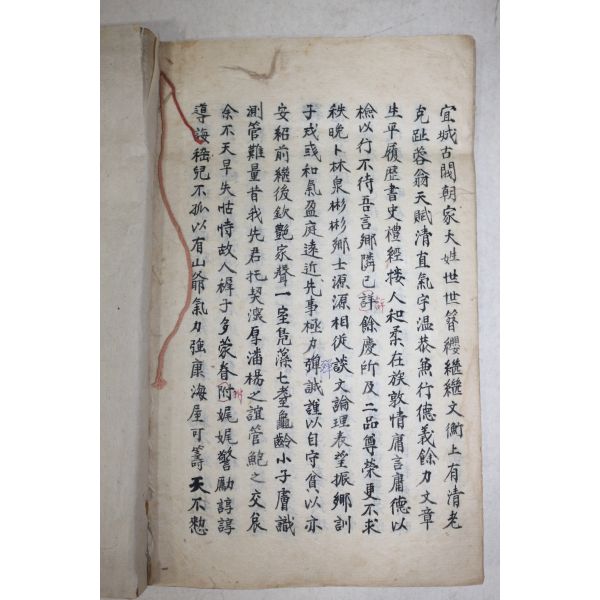 宜城古閥朝家大姓世世簪纓繼繼文衡上有清老
克趾蓉翁天賦清直氣宇溫恭篤行德義餘力文章
生平履歷書史禮經接人和柔在族敦情庸言庸德以
檢以行不待吾言鄉隣已詳餘慶所及二品尊榮更不求
秩晩卜林泉彬彬鄉士源源相從談文論理表望振鄉訓
子戎彧和氣盈庭遠近先事極力彈誠謹以自守貧以亦
安紹前繼後欽艶家聲一室凫藻七耋龜齡小子膚識
測管難量昔我先君托契深厚潘楊之誼管鮑之交哀
余不天早失怙恃故人裤子多蒙眷附娓娓警勵諄諄
導誨嵇兒不孤以有山爺氣力強康海屋可籌天不憖